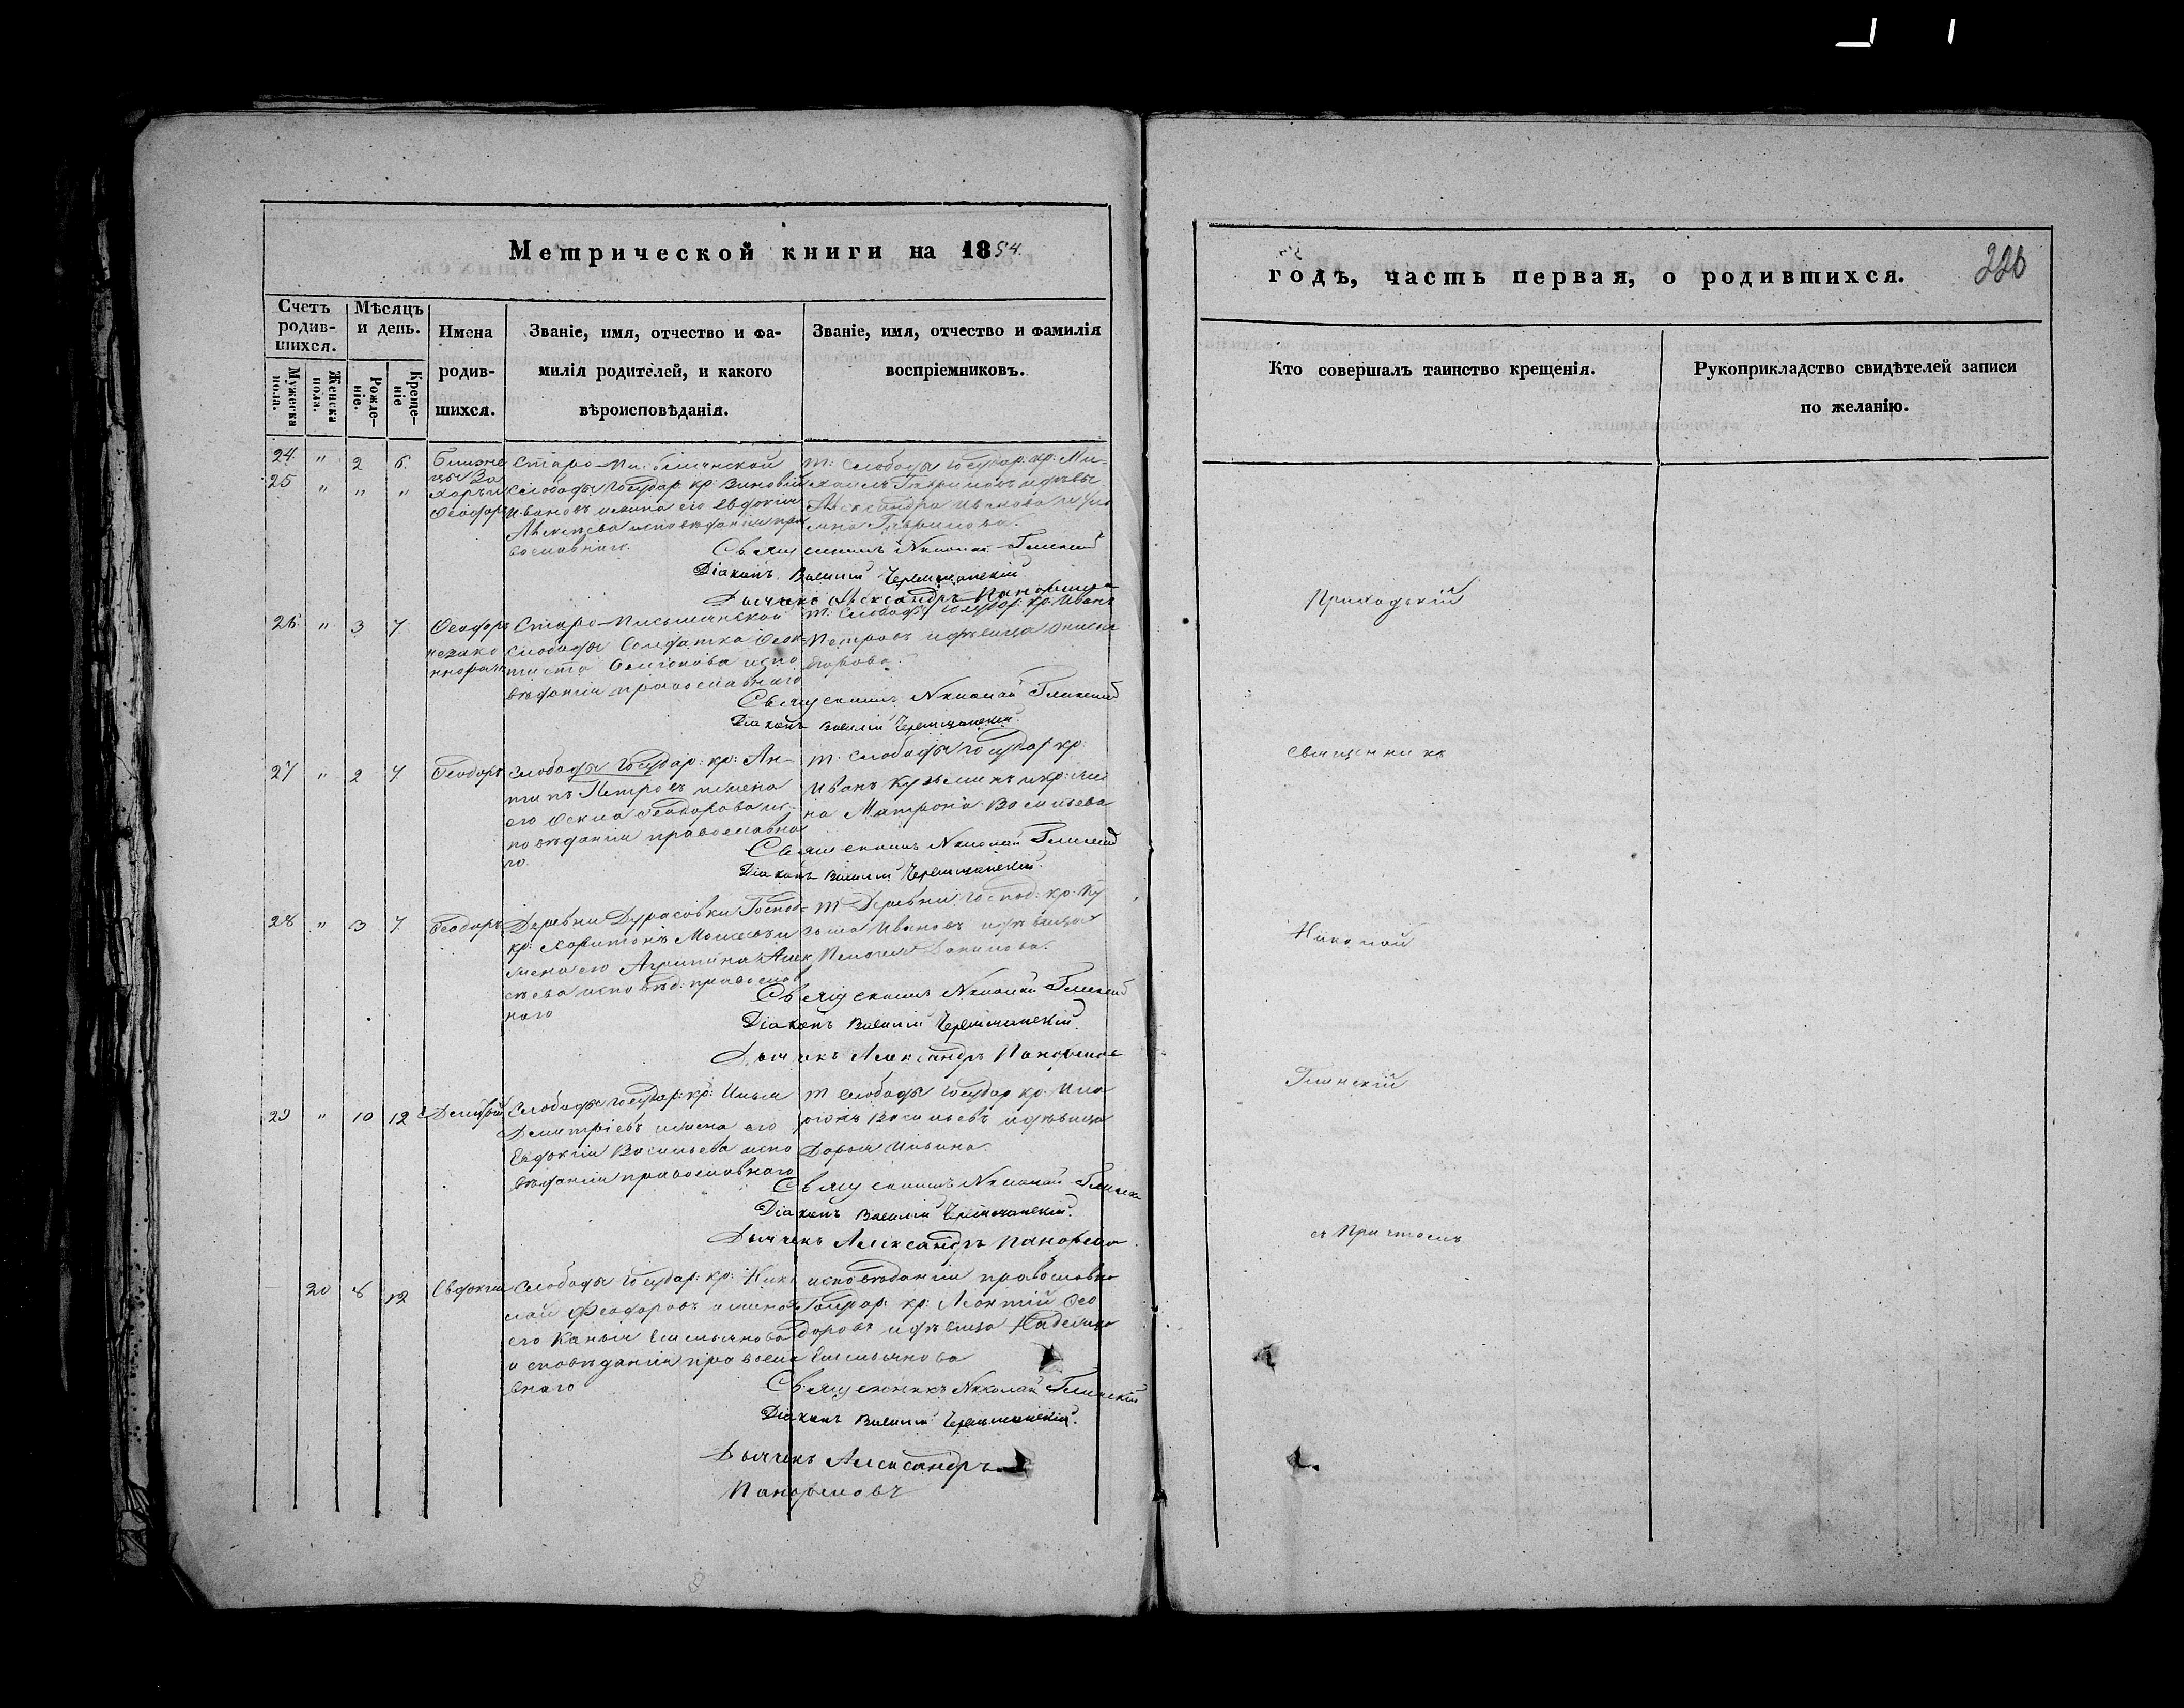 Метрической книги на 1854.
Счетъ родив-шихся.
Мужеска пола.
Женска пола.
Мѣсяцъ и день.
Рожде-ніе.
Креще-ніе
Имена родив-шихся.
Званіе, имя, отчество и фа-
милія родителей, и какого
вѣроисповѣданія.
Званіе, имя, отчество и фамилія
воспріемниковъ.
24 " 2 6. Близне
25 " " "
цы За
харъ и
Ѳеодоръ
Старо-Письмянской
слободы Государ: кр: Зиновій
Ивановъ и жена его Евдокія
Алексѣева исповѣданія пра
вославнаго.
т: Слободы Государ: кр: Ми-
хаилъ Гавриловъ и
Александра Иванова
Гаврилова.
Священникъ Николай Глинскій
Діаконъ Василій Черемшанскій
Дьячекъ Александръ
26 " 3 7 Ѳеодоръ
незако
ннорож
Старо-Письмянской
слободы Солдатка Ѳеок-
тиста Семіонова испо
вѣданія православнаго
т: Слободы Государ: кр: Иванъ
Петровъ и дѣвица
Егорова.
Священникъ Николай Глинскій
Діаконъ Василій Черемшанскій.
27 " 2 7 Ѳеодоръ
Слободы Государ: кр: Ан-
типъ Петровъ и жена
его Ѳекла Ѳеодорова ис-
повѣданія православна
го.
т: слободы Государ кр:
Иванъ Кузьминъ и кр: же
на Матрона Васильева
Священникъ Николай Глинскій
Діаконъ Василій Черемшанскій.
28 " 3 7 Ѳеодоръ
Деревни Дурасовки Господ:
кр: Харитонъ Моисеевъ и
жена его Агрипина Алек
сѣева исповѣд: православ
наго
т Деревни Господ: кр: Ку
зьма Ивановъ и дѣвица
Пелагея Данилова.
Священникъ Николай Глинскій
Діаконъ Василій Черемшанскій.
Дьячекъ Александръ
29 " 10 12 Димитрій
Слободы Государ: кр: Илья
Димитріевъ и жена его
Евдокія Васильева испо
вѣданія православнаго
т Слободы Государ кр: Ила
ріонъ Васильевъ и дѣвица
Дарья Ильина.
Священникъ Николай Глинскій
Діаконъ Василій Черемшанскій.
Дьячекъ Александръ
20 8 12 Евдокія
Слободы Государ: кр: Нико
лай Ѳеодоровъ и жена
его Емельянова
исповѣданія правосла
внаго
исповѣданія православна
Государ: кр: Леонтій Ѳео
доровъ и дѣвица Надежда
Емельянова
Священникъ Николай Глинскій
Діаконъ Василій Черемшанскій.
Дьячекъ Александръ
годъ, часть первая, о родившихся.
226
Кто совершалъ таинство крещенія.
Рукоприкладство свидѣтелей записи
по желанію.
Приходскій
священникъ
Николай
Глинскій
съ Причтомъ